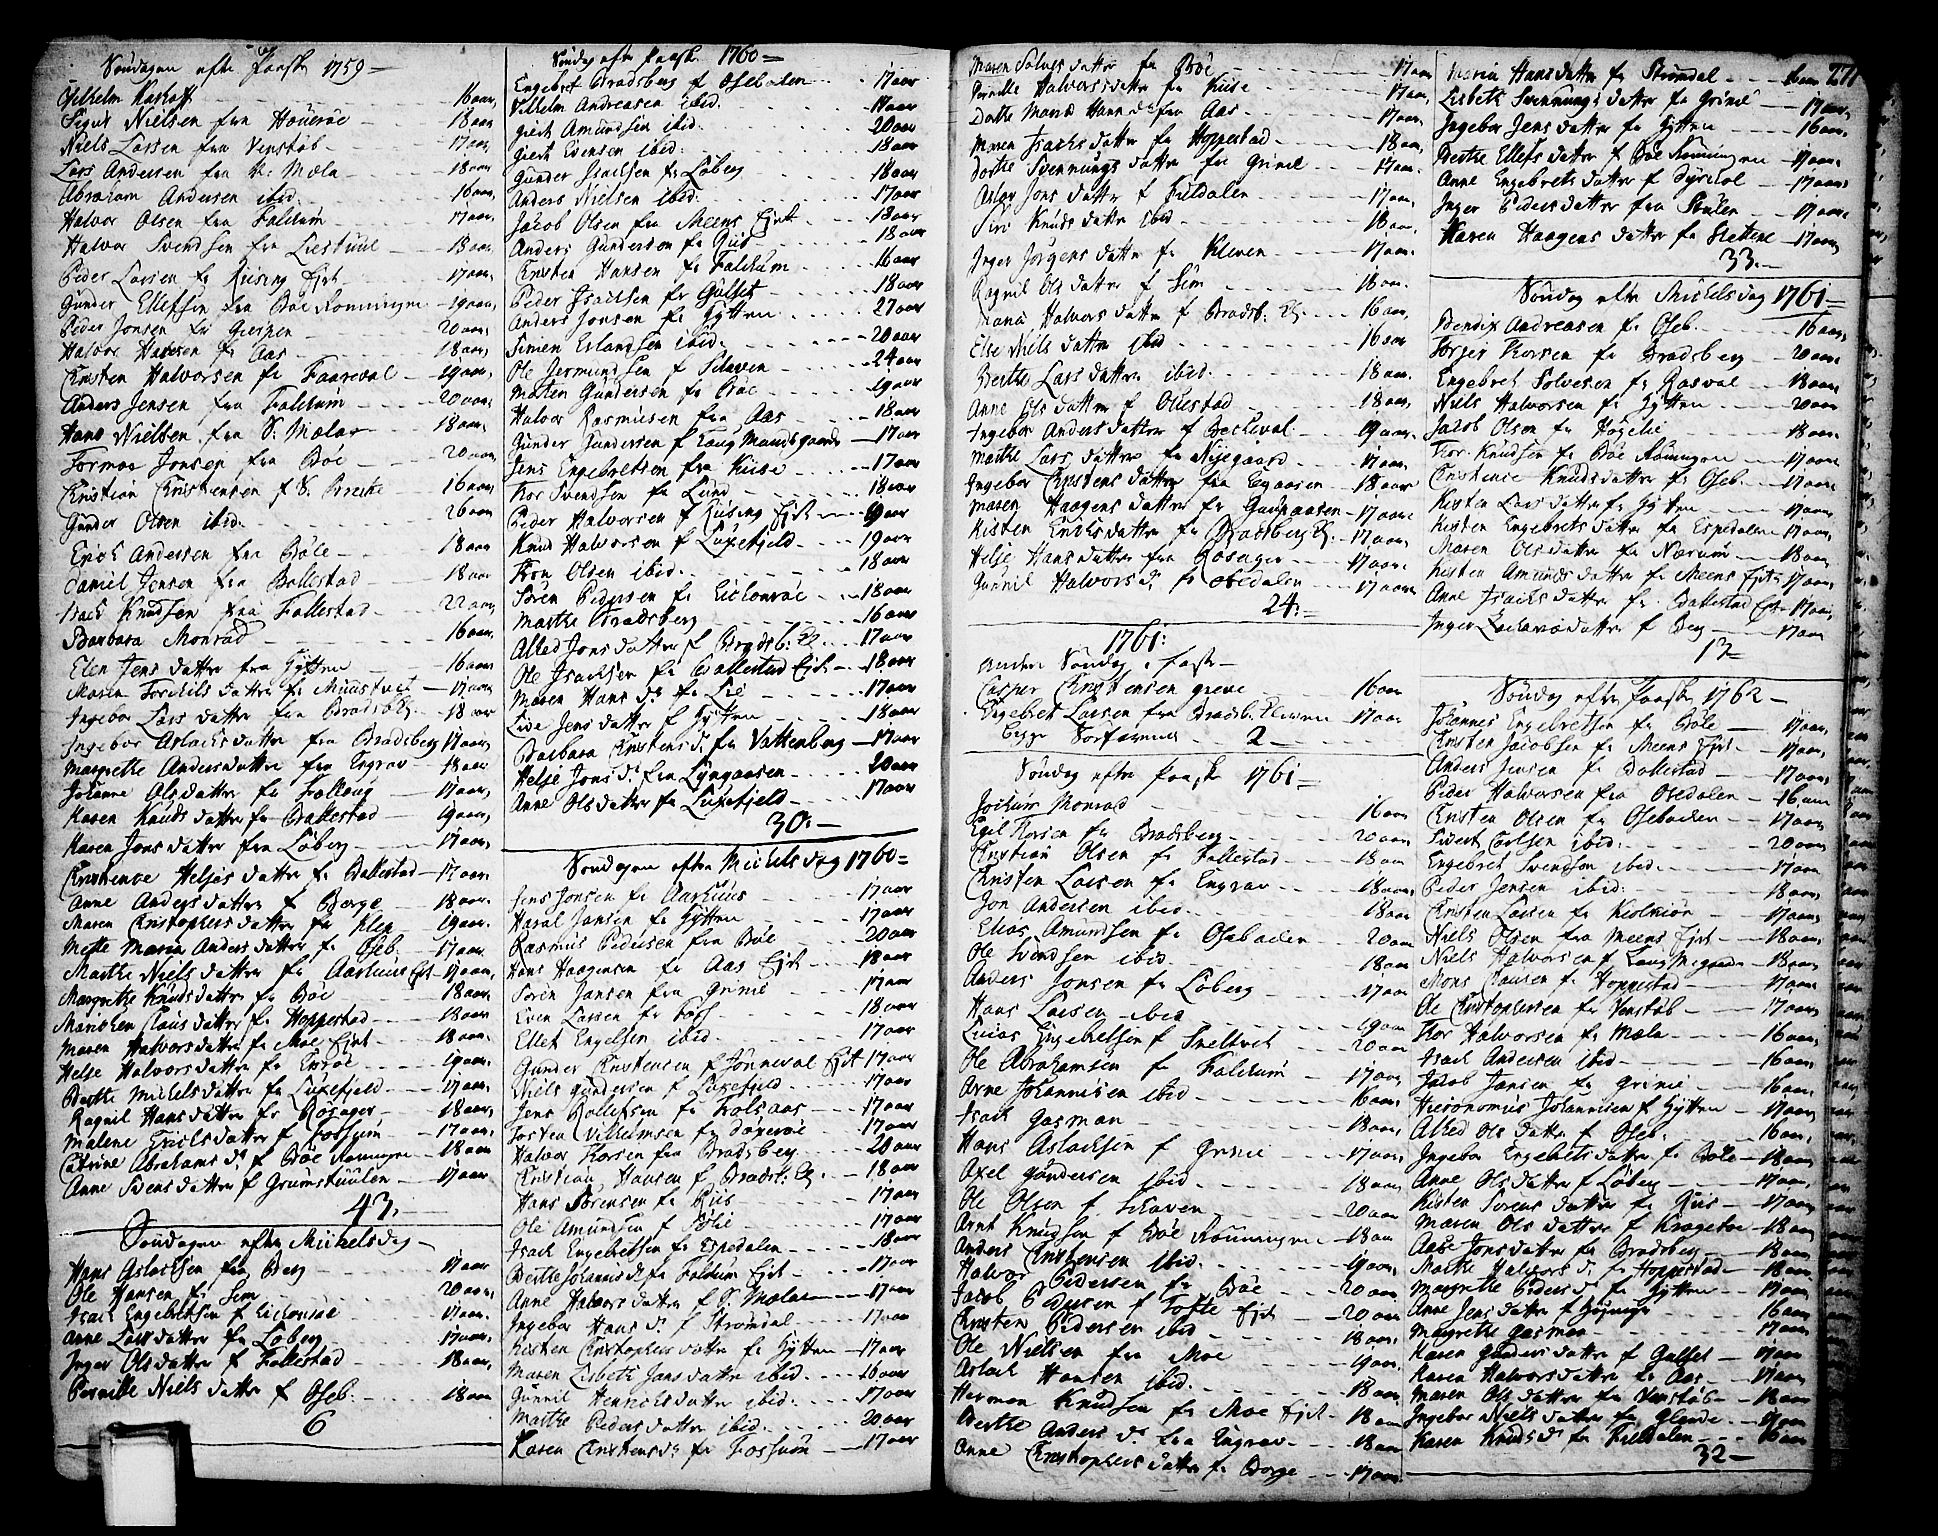 Søndagen efter Paaske 1759
Vilhelm 16 aar
Niels Larsen fra Venstøb 17 aar
Lars Andersen fra N. Mæla 18 aar
Abraham Andersen ibid. 16 aar
Halvor Olsen fra Faldum 17 aar
Halvor Svendsen fra Liestuul 18 aar
Peder Larsen fr Riising Ejet 17 aar
Gunder Ellefsen fra Bøe Rønningen 19 aar
Peder Jonsen fr Gierpen 20 aar
Halvor Hansen fr Aas 18 aar
Kristen Halvorsen fr 19 aar
Anders Jensen fra Faldum 20 aar
Hans Nielsen fra S. Mæla 18 aar
Tormoe Jonsen fra Bøe 20 aar
Kristian Kristensen f S. Brekke 16 aar
Gunder Olsen ibid. 26 aar
Erich Andersen fra Bøle 18 aar
Daniel Jensen fra Ballestad 18 aar
Isach Knudsen fra Fallestad 22 aar
Barbara Monrad 16 aar
Elen Jens datter fra Hytten 16 aar
Maren Torchils datter fr 17 aar
Ingebor Lars datter fra Bradsb. 18 aar
Ingebor Aslachs datter fra Bradsberg 17 aar
Margrethe Anders datter fra Engrav 18 aar
Johanne Ols datter fr 17 aar
Karen Knuds datter fr Ballestad 19 aar
Karen Jons datter fra Løberg 17 aar
Helges datter fr Ballestad 17 aar
Anne Anders datter f Borge 18 aar
Maren Christophers datter fr Klep 19 aar
Mette Maria Anders datter fr Oseb. 17 aar
Marthe Niels datter fr Aarhuus Ejet 17 aar
Margrethe Knuds datter fr Bøe 18 aar
Marichen Claus datter fr Hoppestad 18 aar
Maren Halvors datter fr Moe Ejet 18 aar
Helje Halvors datter fr 19 aar
Berthe Michels datter fr Luxefjeld 17 aar
Ragnil Hans datter fr Rosager 18 aar
Malene Erichs datter f Fossum 17 aar
Catrine Abrahams dr f Bøe Rønningen 18 aar
Anne Svens datter f Grumstuulen 17 aar
43
Søndagen efter Michelsdag
Hans Aslachsen fra Berg 17 aar
Ole Hansen fr Sem 20 aar
Isach Engebretsen f 17 aar
Anne Lars datter fra Løberg 17 aar
Inger Ols datter f Fallestad 18 aar
Pernille Niels datter f Oseb. 18 aar
6
Søndag efter Paaske 1760
Engebret Bradsberg f Osebakken 17 aar
Vilhelm Andreasen ibid.
Giert Amundsen ibid. 20 aar
Giert Evensen ibid. 18 aar
Gunder Isachsen fr Løberg 18 aar
Anders Nielsen ibid. 17 aar
Jacob Olsen fra Meens Ejet 18 aar
Anders Gundersen fr Riis 18 aar
Kristen Hansen fr Faldum 16 aar
Peder Isachsen fr Gulset 18 aar
Anders Jonsen fr Hytten 27 aar
Simen Erlandsen ibid. 20 aar
Ole Jermundsen f Schaven 24 aar
Morten Gundersen fr Bøe 19 aar
Halvor Rasmusen fra Aas 18 aar
Gunder Gundersen f Laugmandsgaarde 17 aar
Jens Engebretsen fra Kiise 17 aar
Thor Svendsen fr Lund 18 aar
Peder Halvorsen f Riising Ejet 19 aar
Knud Halvorsen f Luxefjeld 19 aar
Thron Olsen ibid. 18 aar
Søren Pedersen fr 18 aar
Marthe Bradsberg 16 aar
Alled Jons datter f Bradsb. 17 aar
Ole Isachsen fr Ballestad Ejet 18 aar
Maren Hans dr fr Lie 17 aar
Live Jens datter f Hytten 18 aar
Barbara Kristens dr fr Vattenberg 17 aar
Helje Jons dr fra Lyngaasen 20 aar
Anne Ols datter fr Luxefjeld 17 aar
30
Søndagen efter Michelsdag 1760
Jens Jonsen fr Aarhuus 17 aar
Haral Jansen fr Hytten 17 aar
Rasmus Pedersen fra Bøe 20 aar
Hans Haagensen fr Aas Ejet 18 aar
Søren Jansen fra Grinie 17 aar
Even Larsen fr Foss 18 aar
Ellef Engelsen ibid. 17 aar
Gunder Kristensen f Jønneval Ejet 17 aar
Niels Gundersen f Luxefjeld 17 aar
Jens Rollefsen fr Folsaas 17 aar
Josten Vilhelmsen fr 17 aar
Halvor Thorsen fra Bradsberg 20 aar
Christian Hansen f Bradsb. 18 aar
Hans Sørensen fr Riis 17 aar
Ole Amundsen f 17 aar
Isach Engebretsen fr Espedalen 18 aar
Berthe Johannis dr fr Faldum Ejet 17 aar
Anne Halvors datter f S. Mæla 17 aar
Ingebor Hans dr f Strømdal 17 aar
Kirsten Christophers datter fr Hytten 17 aar
Maren Lisbeth Jans datter ibid. 16 aar
Gunnil Henrichs datter ibid. 17 aar
Marthe Peders datter ibid. 20 aar
Karen Christens dr fr Fossum 17 aar
Maren Solves datter fr Bøe 17 aar
Pernille Halvors datter fr Kiise 17 aar
Dorthe Maria Hans dr fra Aas 17 aar
Maren Isachs datter fr Hoppestad 18 aar
Dorthe Svennungs datter fra Grinie 17 aar
Aslov Jons datter f Fieldalen 17 aar
Siri Knuds datter ibid 18 aar
Inger Jørgens datter fr Kleven 17 aar
Ragnil Ols datter fr Sem 18 aar
Maria Halvors datter f Bradsb. 16 aar
Else Niels datter ibid 16 aar
Berthe Lars datter ibid. 18 aar
Anne Ols datter f 18 aar
Ingebor Anders datter f Becheval 19 aar
Marthe Lars datter fr Nygaard 17 aar
Ingebor Christens datter fra 18 aar
Maren Haagens datter fr 17 aar
Kirsten Erichs datter fr Bradsberg 17 aar
Helje Hans datter fra Rosager 17 aar
Gunnil Halvors dr fr Osedalen 17 aar
24
1761
Anden Søndag i Faste
Casper Christensen Greve 16 aar
Engebret Larsen fra Bradsb. Klevene 17 aar
Begge Søefarende 2
Søndag efter Paaske 1761
Jochum Monrad 16 aar
Egil Thorsen fr Bradsberg 20 aar
Christian Olsen fr Fallestad 18 aar
Christen Larsen fr Engrav 18 aar
Jon Andersen ibid. 18 aar
Elias Amundsen fr Osebacken 20 aar
Ole Svendsen ibid. 18 aar
Anders Jonsen fr Løberg 17 aar
Hans Larsen ibid 19 aar
Lucas Engebretsen f Snelltvet 20 aar
Ole Abrahamsen fr Faldum 17 aar
Arne Johannisen ibid 16 aar
Isach Gasman 18 aar
Hans Aslachsen f Grinie 17 aar
Axel Gundersen ibid. 18 aar
Ole Olsen f Schaven 20 aar
Arnt Knudsen f Bøe Rønningen 18 aar
Anders Christensen ibid. 19 aar
Halvor Pedersen fr Bøe 20 aar
Jacob Pedersen f Tofte Ejet 20 aar
Christen Pedersen ibid 18 aar
Ole Nielsen fra Moe 19 aar
Aslach Hansen ibid. 18 aar
Herman Knudsen fr Moe Ejet 18 aar
Berthe Anders dr fra Engrav 18 aar
Anne Christophers datter fr Borge 17 aar
271
Maria Hans datter fr Strømdal 16 aar
Lisbeth Svennungs datter fr Grinie 17 aar
Ingebor Jens datter fr Hytten 16 aar
Berthe Ellefs datter f Bøe Rønningen 17 aar
Anne Engebrets datter f 17 aar
Inger Peders datter fra Stulen 17 aar
Karen Haagens datter fr Slettene 17 aar
33
Søndag efter Michelsdag 1761
Bendix Andreasen fr Oseb. 16 aar
Torger Thorsen fr Bradsberg 20 aar
Engebret Solvesen fr Rasval 18 aar
Niels Halvorsen fr Hytten 20 aar
Jacob Olsen fr 18 aar
Thor Knudsen fr Bøe Rønningen 17 aar
Christence Knuds datter fr Oseb. 17 aar
Kirsten Lars datter fr Hytten 17 aar
Kirsten Engebrets datter fr Espedalen 17 aar
Maren Ols datter fr Nærum 18 aar
Kirsten Amunds datter fr Meens Ejet 17 aar
Anne Isachs datter fr Ballestad Ejet 17 aar
Inger Zacharia datter f Berg 17 aar
13
Søndag efter Paaske 1762
Johannes Engebretsen fr Bøle 17 aar
Christen Jacobsen fr Meens Ejet 17 aar
Anders Jensen fr Ballestad 17 aar
Peder Halvorsen fra Osedalen 16 aar
Christen Olsen fr Osebacken 17 aar
Sivert Carlsen ibid. 20 aar
Engebret Svendsen ibid. 17 aar
Peder Jensen ibid. 18 aar
Christen Larsen fr 17 aar
Niels Olsen fra Meens Ejet 18 aar
Niels Halvorsen f Laugmsgaarde 18 aar
Mons Clausen fr Hoppestad 17 aar
Ole Christophersen fr Venstøb 17 aar
Thor Halvorsen fr Mæla 16 aar
Isach Andersen ibid 16 aar
Jacob Jansen fr Grinie 16 aar
Hieronomus Johannisen fr Hytten 17 aar
Alhed Ols datter f Oseb. 16 aar
Ingebor Engebrets datter fr Bøle 18 aar
Anne Ols datter f Løberg 17 aar
Kirsten Sørens datter fr Riis 17 aar
Maren Ols datter f Kragerøe 18 aar
Aase Jons datter fr Bradsberg 18 aar
Marthe Halvors dr fr Hoppestad 18 aar
Margrethe Peders dr fr Hytten 17 aar
Anne Jens datter f 16 aar
Margrethe Gasman 17 aar
Karen Gunders datter f Gulset 17 aar
Karen Halvors datter fr Aas 17 aar
Maren Ols datter fr Venstøb 18 aar
Ingebor Niels datter fr 17 aar
Karen Knuds dr fr Fieldalen 16 aar
32